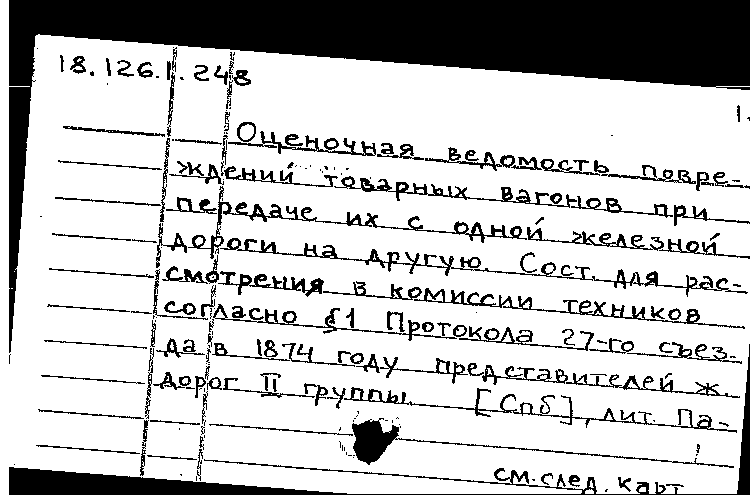 18.126.1.248
1.
Оценочная ведомость повре-
ждений товарных вагонов при
передаче их с одной железной
дороги на другую. Сост. для рас-
смотрения в комиссии техников
согласно §1 Протокола 27-го съез-
да в 1874 году представителей ж.
дорог II группы. [Спб], лит. Па-
см. след. карт